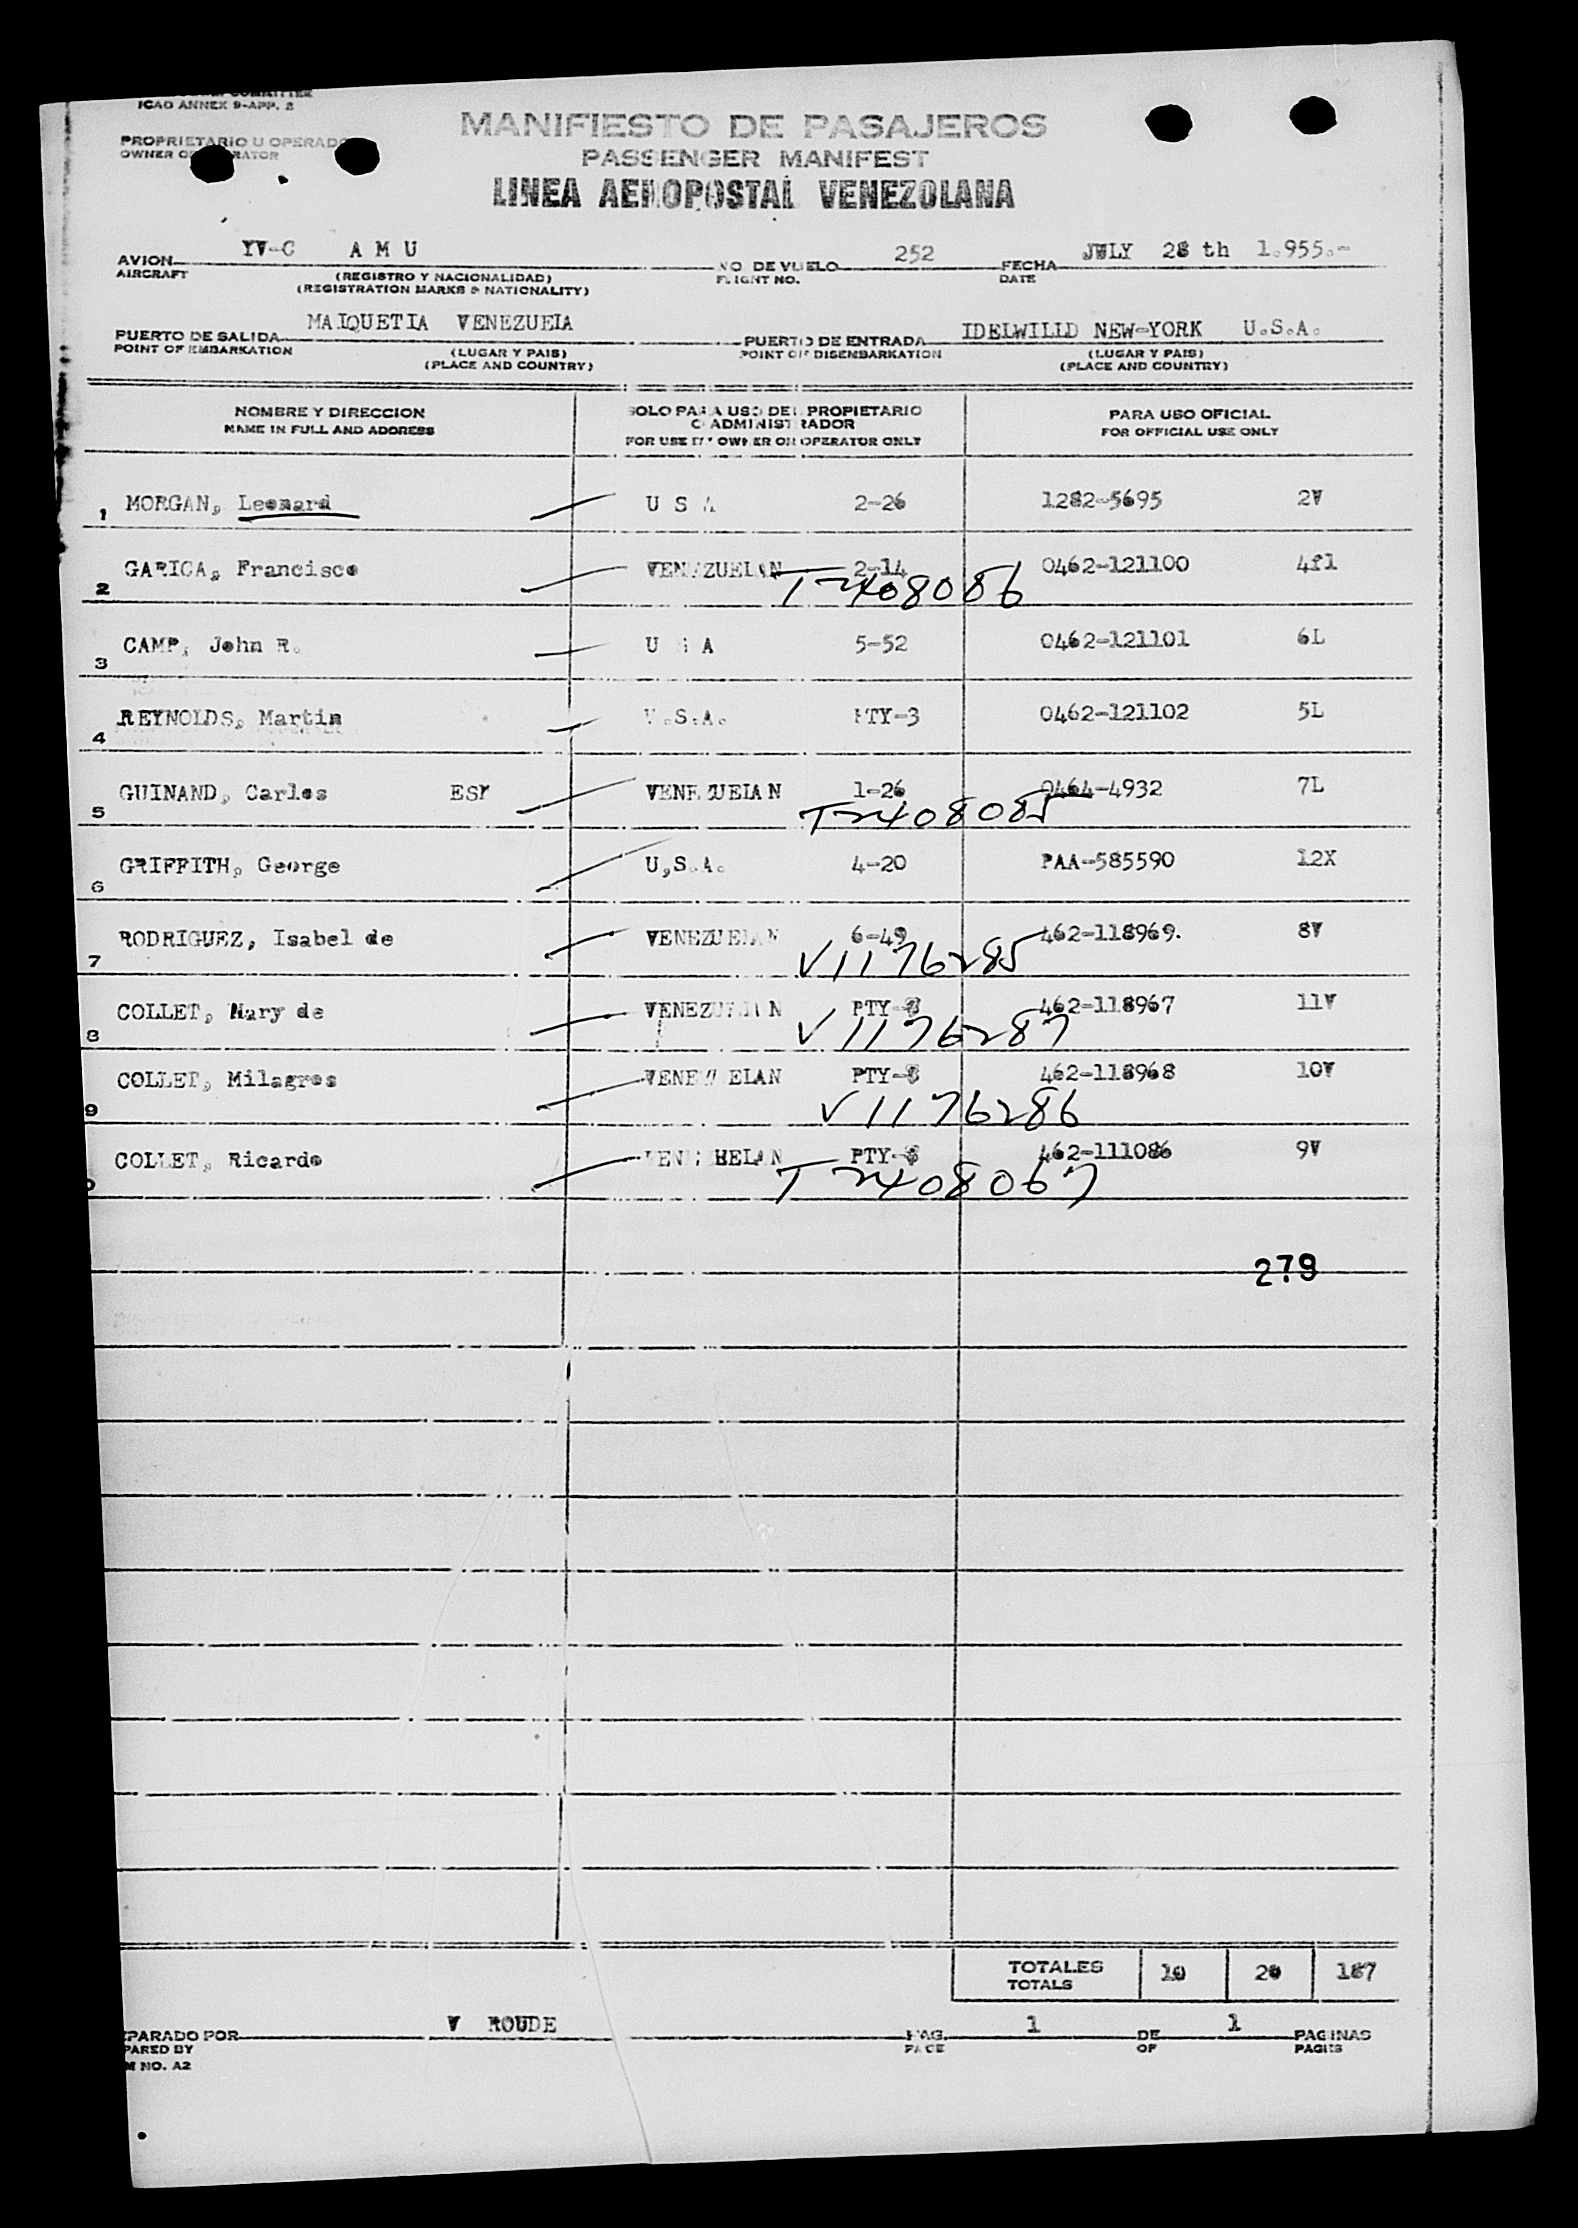 ICAO ANNEX 9-APP. 2
PROPRIETARIO U OPERADO
OWNER
MANIFIESTO DE PASAJEROS
PASSENGER MANIFEST
LINEA AEROPOSTAL VENEZOLANA
AVION YV-C A M U NO DE VUELO 252 FECHA JULY 28 th 1.955.-
AIRCRAFT (REGISTRO Y NACIONALIDAD) FLIGHT NO. DATE
(REGISTRATION MARKS & NATIONALITY)
PUERTO DE SALIDA MAIQUETIA VENEZUELA PUERTO DE ENTRADA IDELWILLD NEW-YORK U.S.A.
POINT OF EMBARKATION (LUGAR Y PAIS) POINT OF DISEMBARKATION (LUGAR Y PAIS)
(PLACE AND COUNTRY) (PLACE AND COUNTRY)
NOMBRE Y DIRECCION SOLO PARA USO DEL PROPIETARIO PARA USO OFICIAL
O ADMINISTRADOR
NAME IN FULL AND ADDRESS FOR USE BY OWNER OR OPERATOR ONLY FOR OFFICIAL USE ONLY
1 MORGAN, Leonard U S A 2-26 1282-5695 2V
2 GARICA, Francisco VENEZUELAN 2-14 0462-121100 4f1
T-2408086
3 CAMP, John R. U S A 5-52 0462-121101 6L
4 REYNOLDS, Martin U.S.A. PTY-3 0462-121102 5L
5 GUINAND, Carlos VENEZUELAN 1-26 0464-4932 7L
T-2408085
6 GRIFFITH, George U,S.A. 4-20 PAA-585590 12X
7 RODRIGUEZ, Isabel de VENEZUELAN 6-49 462-118969. 8V
V1176285
8 COLLET, Mary de VENEZUELAN PTY-8 462-118967 11V
V1176287
9 COLLET, Milagros VENEZUELAN PTY-8 462-118968 10V
V1176286
COLLET, Ricardo PTY-8 462-111086 9V
T-2408067
279
TOTALES 10 20 187
TOTALS
PARADO POR V ROUDE PAG. 1 DE 1 PAGINAS
PARED BY PAGE OF PAGES
M NO. A2